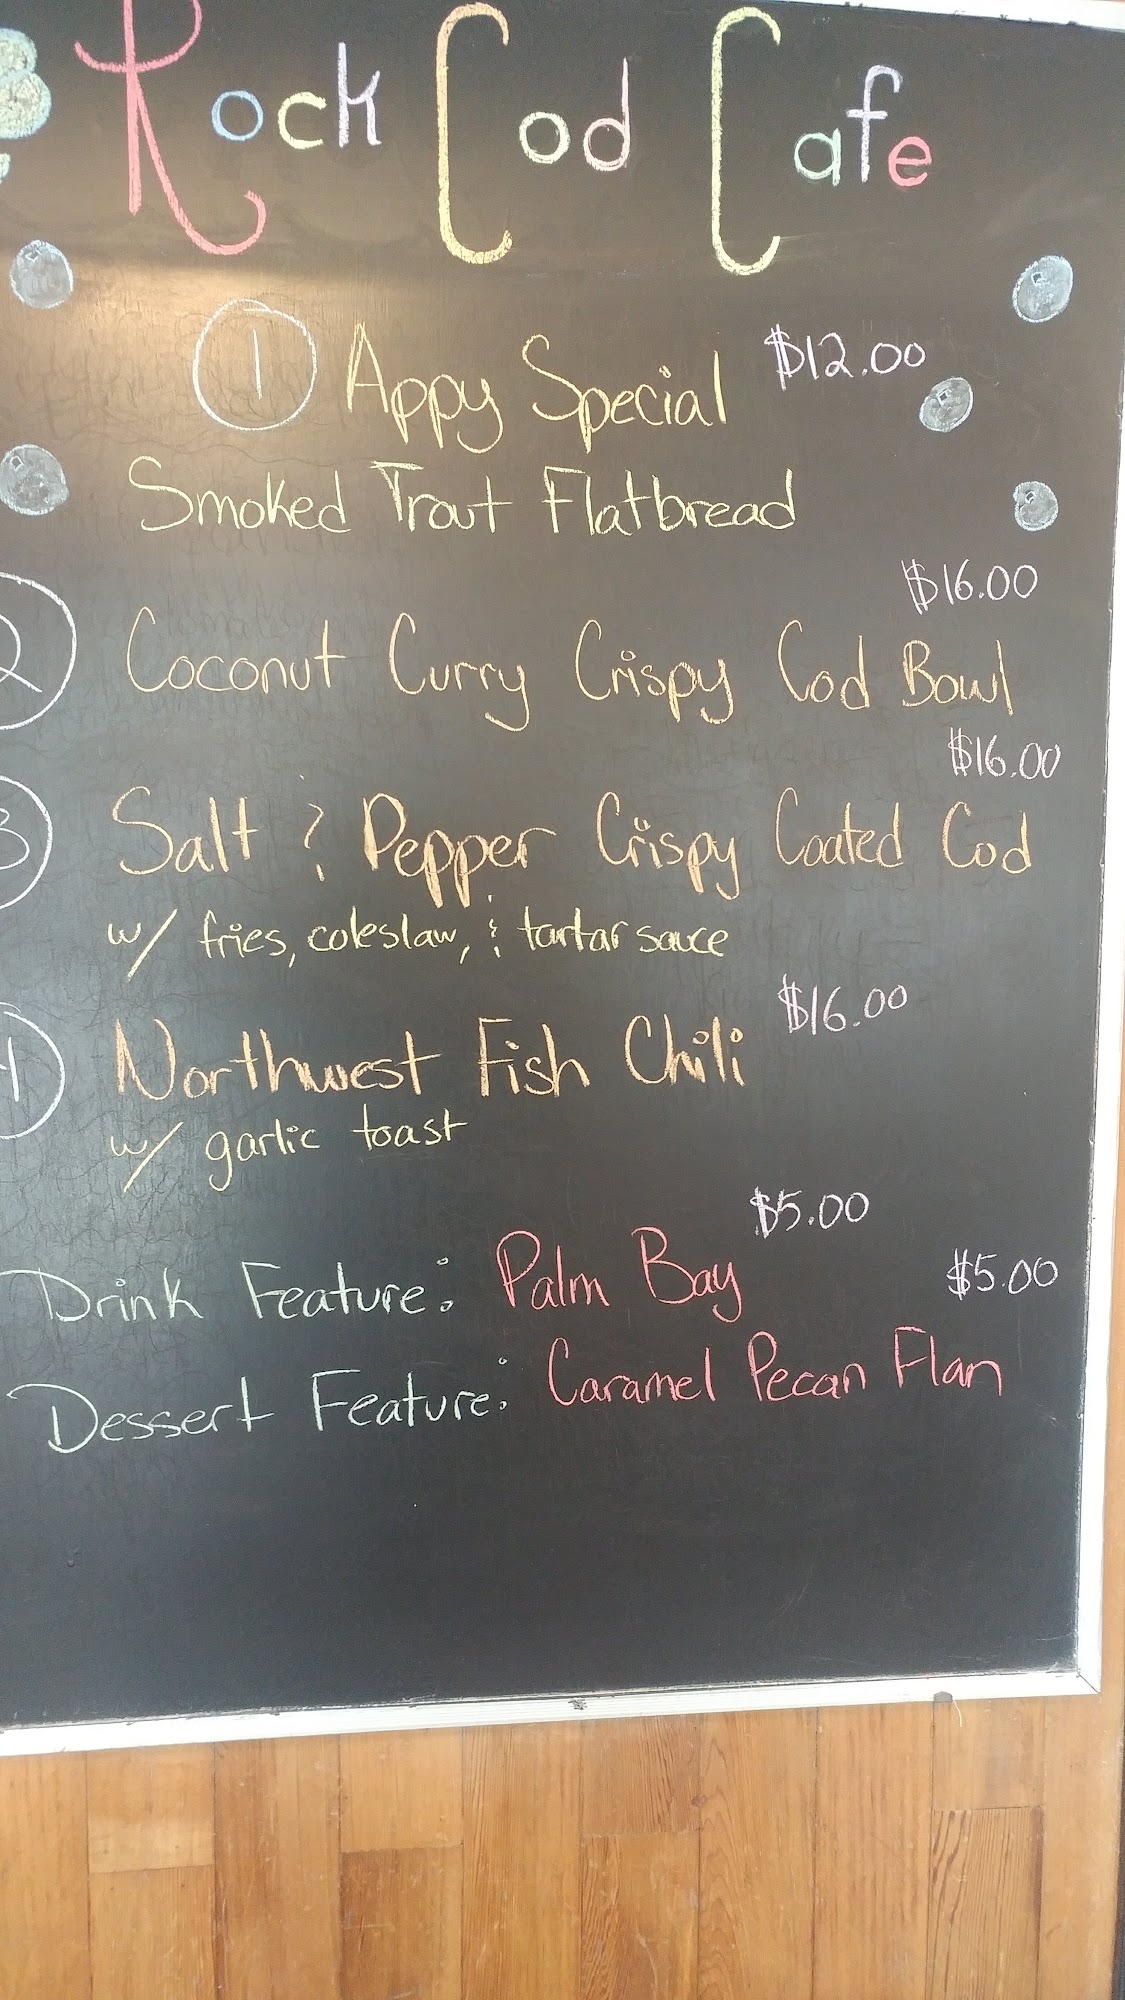 Rock Cod Cafe
1 Appy Special $12.00
Smoked Trout Flatbread
$16.00
2 Coconut Curry Crispy Cod Bowl
$16.00
3 Salt & Pepper Crispy Coated Cod
w/ fries, coleslaw, & tartar sauce
4 Northwest Fish Chili $16.00
w/ garlic toast
Drink Feature: Palm Bay $5.00
Dessert Feature: Caramel Pecan Flan $5.00